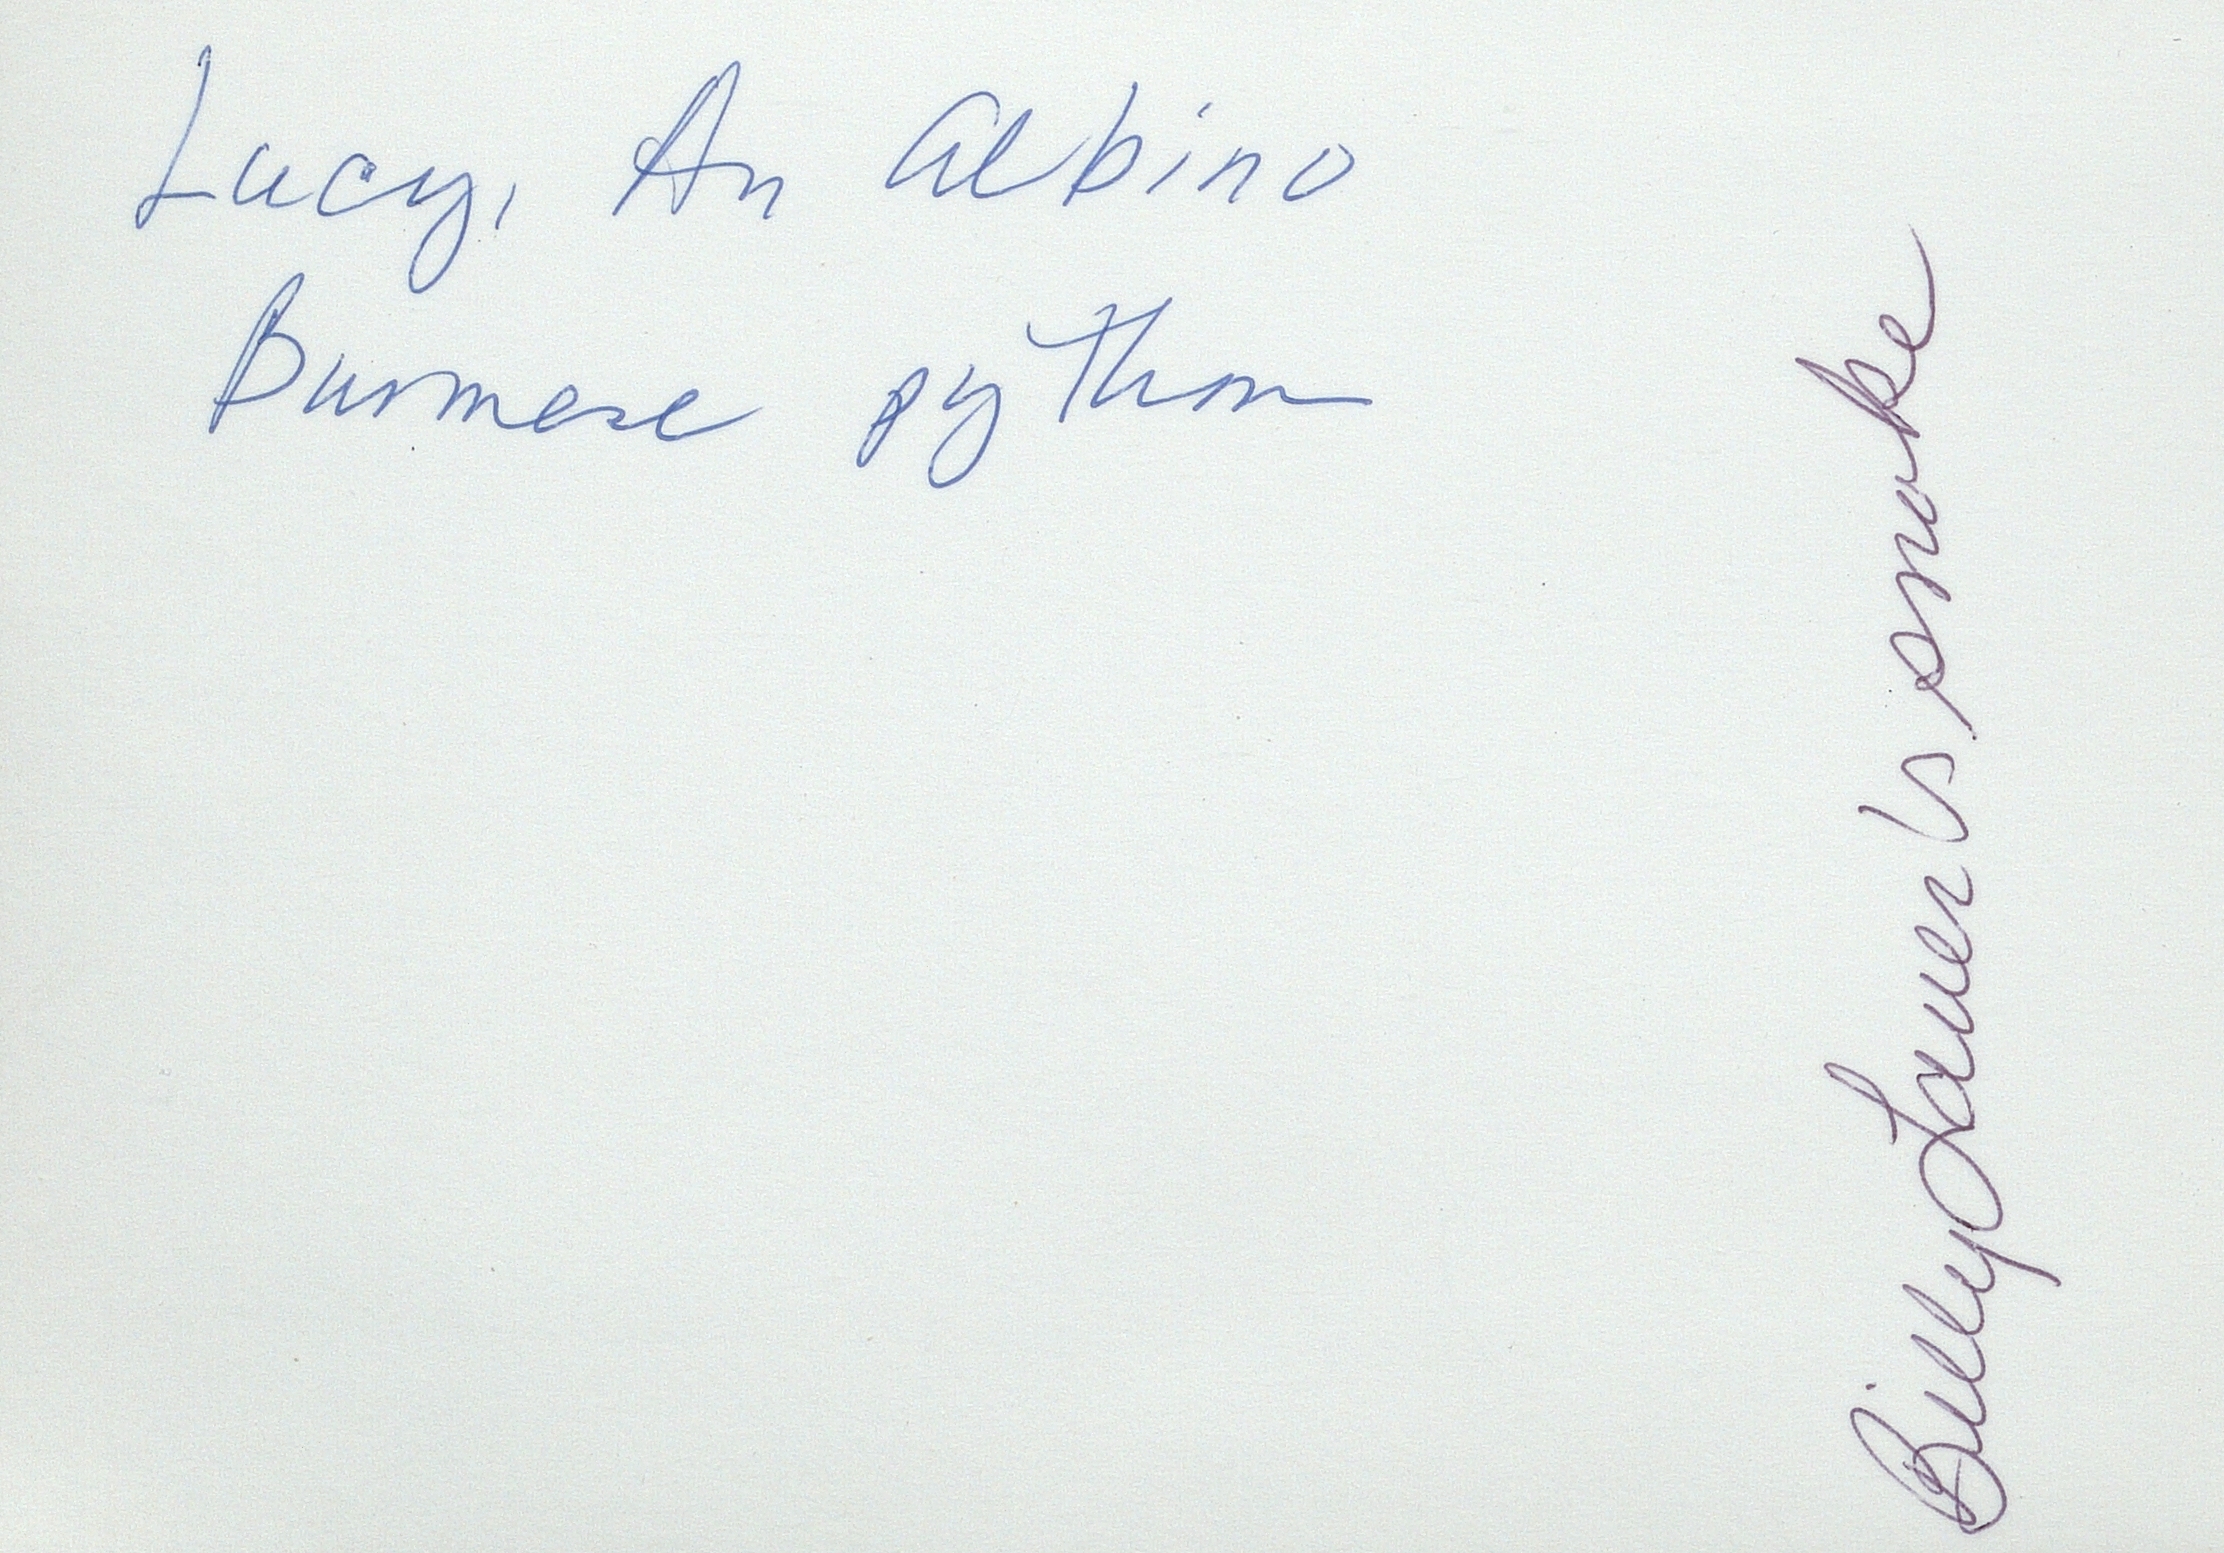 Lucy, An albino
Burmese python
Billy Lauer's snake